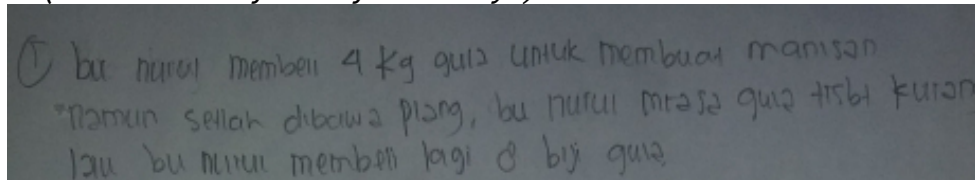 ① bu nurul membeli 4 kg gula untuk membuat manisan
namun setlah dibawa plang, bu nurul mrasa gula trsbt kuran
lau bu nurul membeli lagi 8 biji gula